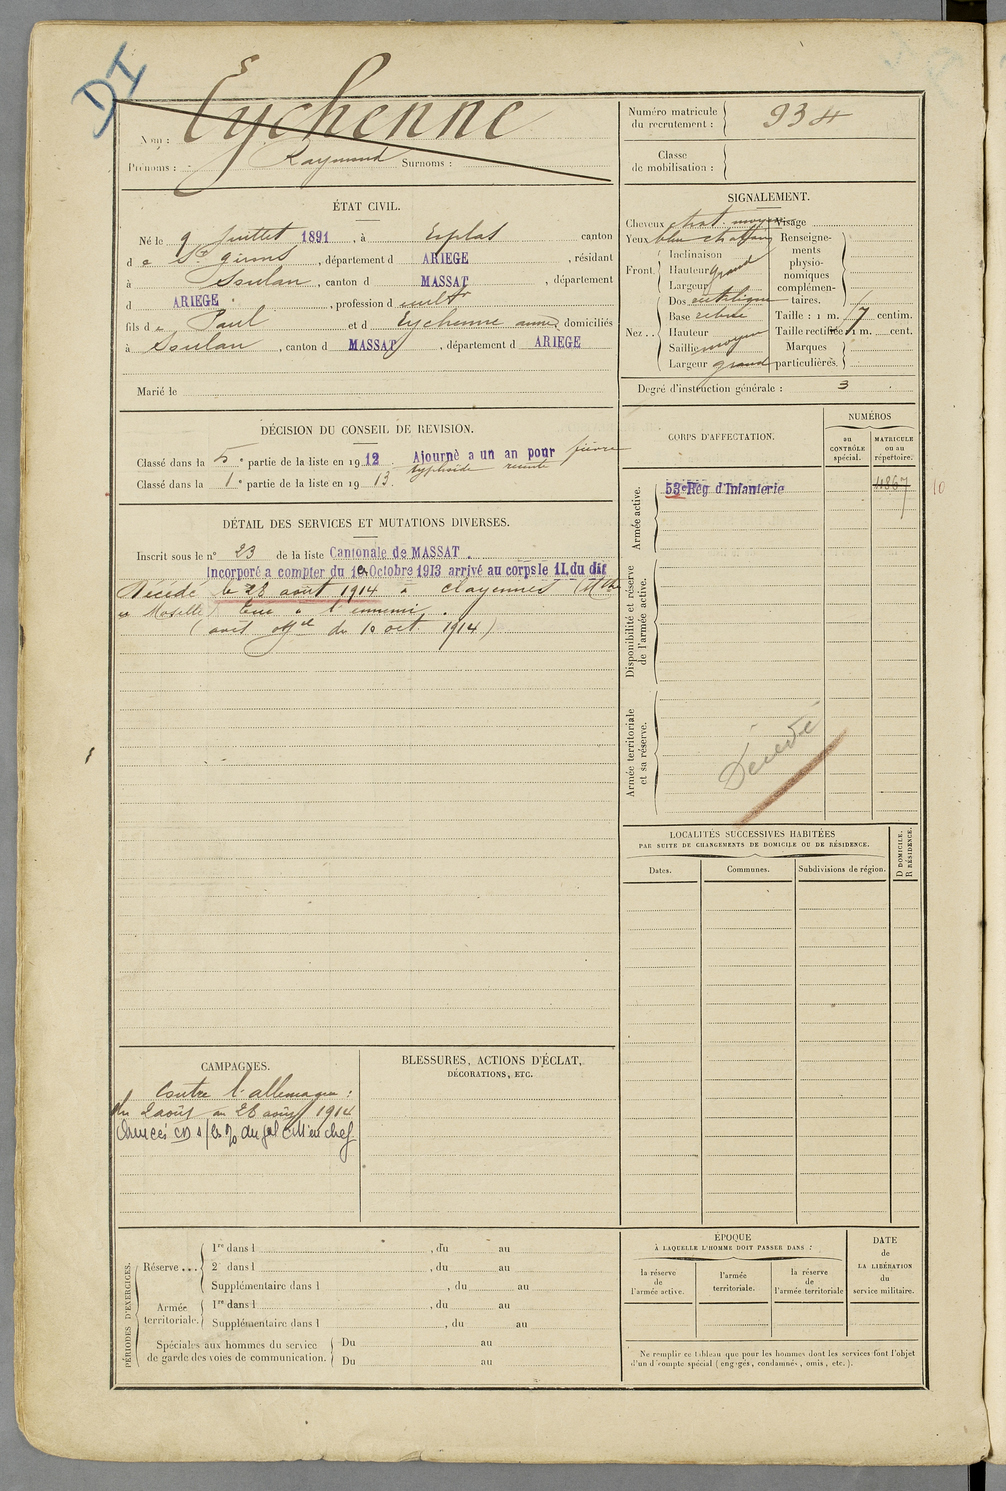 DI
Nom : Eychenne
Prénoms : Raymond Surnoms :
Numéro matricule du recrutement : 934
Classe de mobilisation :
ÉTAT CIVIL.
Né le 9 juillet 1891, à Esplas canton
de St girons, département d ARIEGE, résidant
à Soulan, canton d MASSAT, département
d ARIEGE, profession d cultr
fils de Paul et d Eychenne anne domiciliés
à Soulan, canton d MASSAT, département d ARIEGE
Marié le
SIGNALEMENT.
Cheveux chat. moyen Visage
Yeux bleu
Front Inclinaison
Hauteur grand
Largeur
Nez .. Dos rectiligne
Base
Hauteur
Saillie moyen
Largeur grand
Renseignements physionomiques complémentaires.
Taille : 1 m. 17 centim.
Taille rectifiée 1 m. cent.
Marques particulières.
Degré d'instruction générale : 3
DÉCISION DU CONSEIL DE REVISION.
Classé dans la 5e partie de la liste en 1912. Ajourné a un an pour fièvre
typhoïde récente
Classé dans la 1e partie de la liste en 1913.
DÉTAIL DES SERVICES ET MUTATIONS DIVERSES.
Inscrit sous le n° 23 de la liste Cantonale de MASSAT.
Incorporé a compter du 1er Octobre 1913 arrivé au corps le 11, du dit
Décédé le 28 août 1914 à Clayennes (Mthe
et Moselle) Tué à l'ennemi.
(avis offel du 10 oct. 1914)
CORPS D'AFFECTATION.
NUMÉROS
au CONTRÔLE spécial.
MATRICULE ou au répertoire.
Armée active.
53e Rég d'Infanterie 4867 10
Disponibilité et réserve de l'armée active.
Armée territoriale et sa réserve.
Décédé
LOCALITÉS SUCCESSIVES HABITÉES
PAR SUITE DE CHANGEMENTS DE DOMICILE OU DE RÉSIDENCE.
Dates.
Communes.
Subdivisions de région.
D DOMICILE.
R RÉSIDENCE.
CAMPAGNES.
Contre l'allemagne :
du 2 août au 28 août 1914
BLESSURES, ACTIONS D'ÉCLAT,
DÉCORATIONS, ETC.
PÉRIODES D'EXERCICES.
Réserve ...
1re dans l , du au
2e dans l , du au
Supplémentaire dans l , du au
Armée territoriale.
1re dans l , du au
Supplémentaire dans l , du au
Spéciales aux hommes du service de garde des voies de communication.
Du au
Du au
ÉPOQUE
À LAQUELLE L'HOMME DOIT PASSER DANS :
la réserve de l'armée active.
l'armée territoriale.
la réserve de l'armée territoriale
DATE
de
LA LIBÉRATION
du
service militaire.
Ne remplir ce tableau que pour les hommes dont les services font l'objet
d'un décompte spécial (engagés, condamnés, omis, etc.).